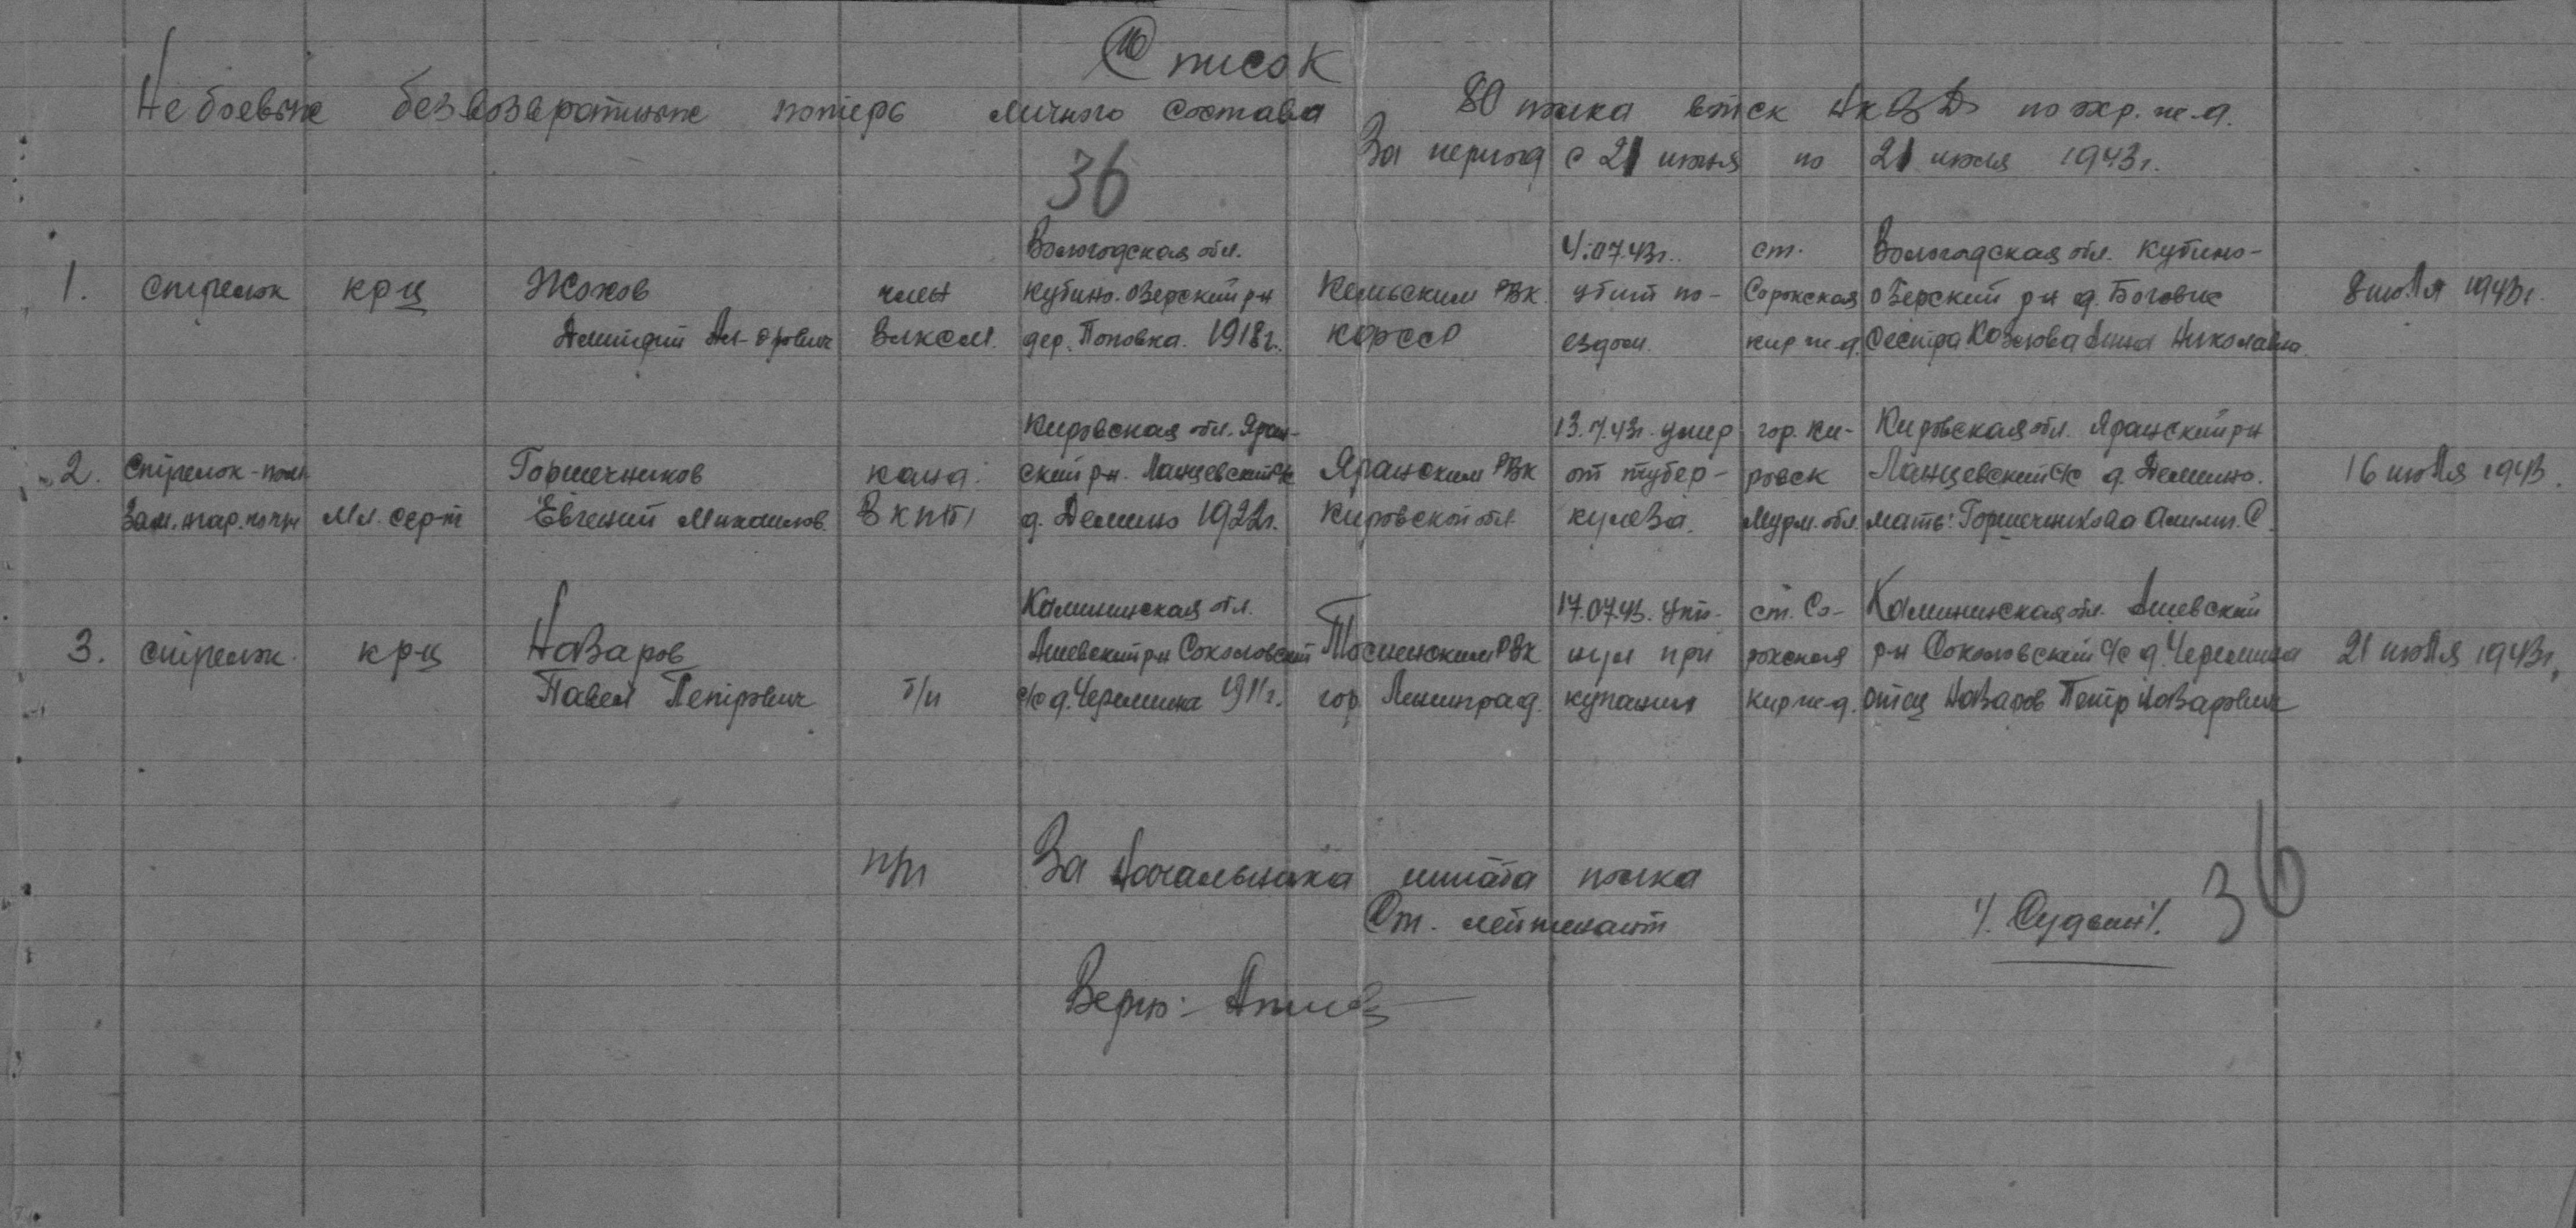 Список
Небоевые безвозвратные потерь личного состава 80 полка войск НКВД по охр. ж.д.
За период с 21 июня по 21 июля 1943г.
36
1. стрелок кр-ц Жохов Дмитрий Ал-дрович член ВЛКСМ. Вологодская обл. Кубино-озерский р-н дер. Поповка. 1918г. Кемьским РВК. КФССР 4.07.43г. убит по-ездом. ст. Сорокская кир ж.д. Вологодская обл. Кубино-озерский р-н д. Боговис сестра Козлова Анна Николавна. 8 июля 1943г.
2. Стрелок-пом. Зам. нар. по чи Мл. серт Горшечников Евгений Михайлов. канд. ВКПб Кировская обл. Яран-ский р-н. Ланцевский с/с д. Демино 1922г. Яранским РВК Кировской обл. 13.7.43г. умер от тубер-кулеза. гор. Ки-ровск Мурм. обл. Кировская обл. Яранский р-н Ланцевский с/с д. Демино. мать: Горшечникова С. 16 июля 1943.
3. стрелок кр-ц Назаров Павел Петрович б/п Калининская обл. Ашевский р-н Соколовский с/с д. Черемина 1911г. Тосненским РВК гор. Ленинград. 17.07.43. уто-нул при купании ст. Со-рокская кир ж.д. Калининская обл. Ашевский р-н Соколовский с/с д. Черемина отец Назаров Петр Назарович 21 июля 1943г.
п/п За Начальника штаба полка
Ст. лейтенант
36
Верно: